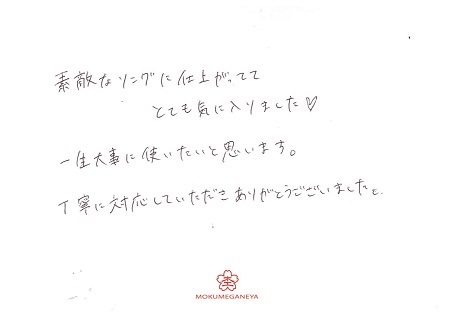 素敵なリングに仕上がってて
とても気に入りました♡
一生大事に使いたいと思います。
丁寧に対応していただきありがとうございました
MOKUMEGANEYA